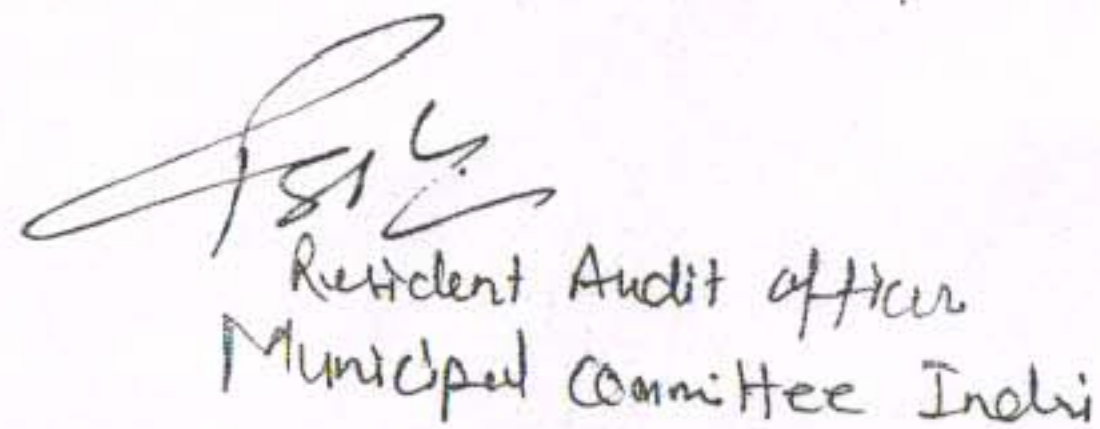 Resident Audit officer
Municipal Committee Indri